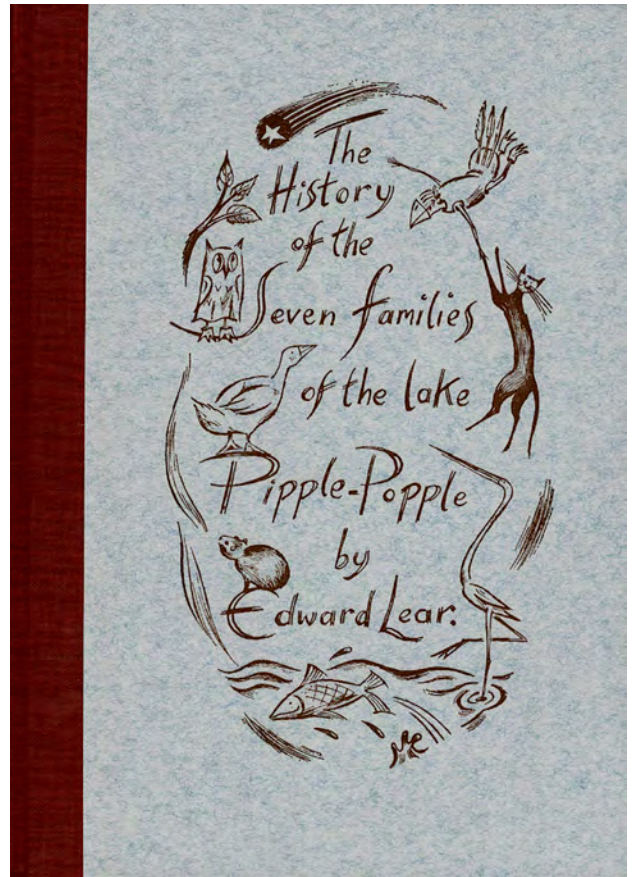 The
History
of the
Seven families
of the lake
Pipple-Popple
by
Edward Lear.